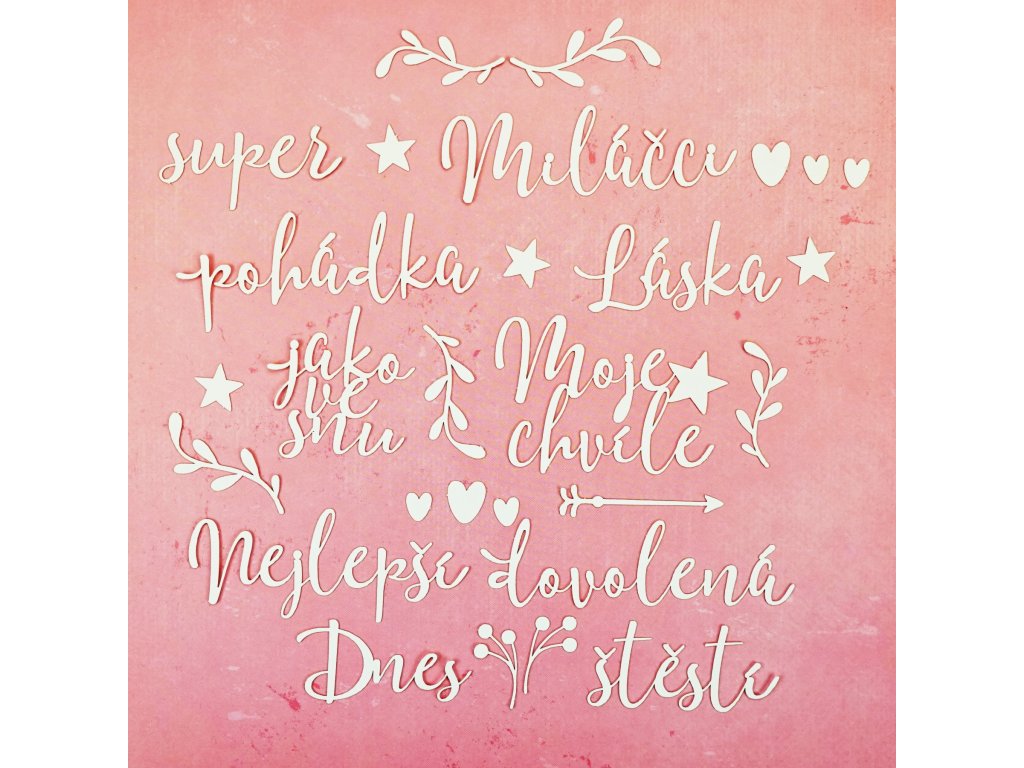 super Miláčci
pohádka Láska
jako
ve
snu
Moje
chvíle
Nejlepší dovolená
Dnes štěstí